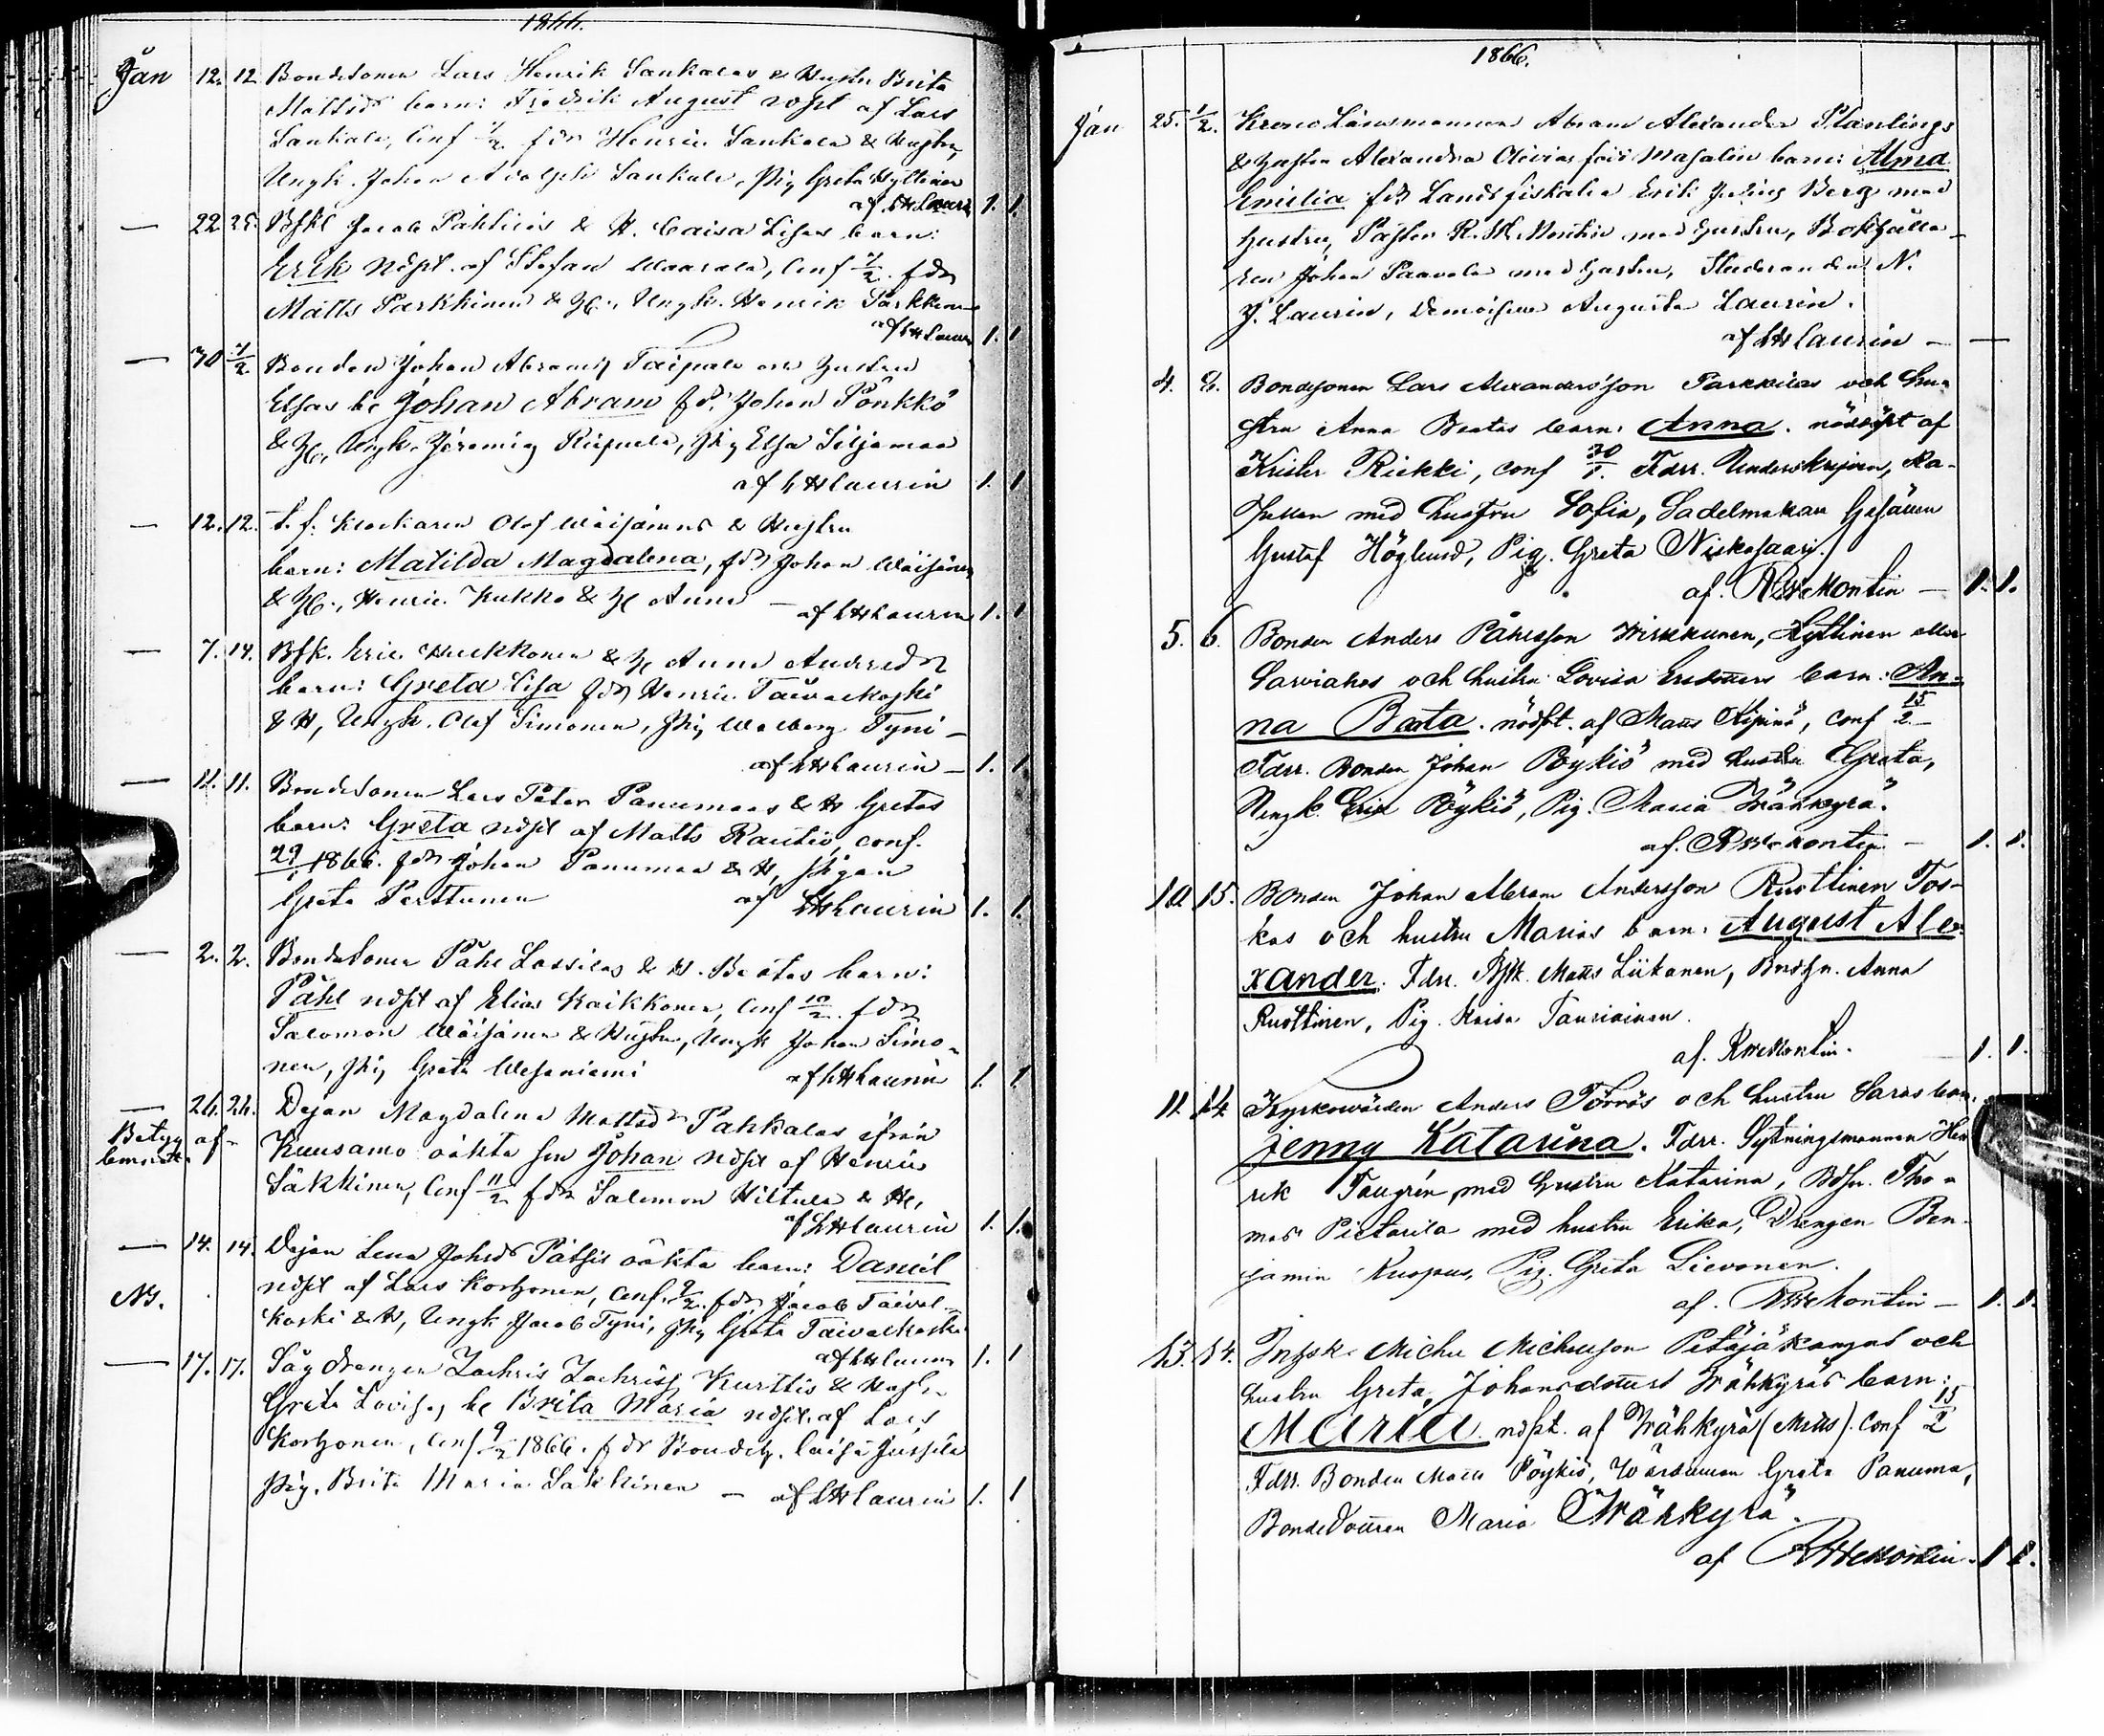 1866.
Jan 12. 12 Bondesonen Lars Henrik Sankalas & Hustru Brita
Mattsdr barn: Fredrik August nöpt af Lars
Sankala, Conf 7/2 fdr Henric Sankala & Hustru,
Ungk. Johan Adolph Sankala, Pig Greta Kyllönen
af LHLaurin 1. 1
— 22 25. Bfkl Jacob Pählins & H. Caisa Lisas barn:
Erik nöpt. af Stefan Waarala, Conf 7/2. fdr
Matts Parkkinen & H., Ungk. Henrik Parkkinen
af LHLaurin 1. 1
— 30 7/2 Bonden Johan Abramss Taipale och Hustru
Elsas be Johan Abram fdr. Johan Pönkkö
& H., Ungk. Jeremias Riepula, Pig Elsa Siljamaa
af LHLaurin 1. 1
— 12. 12. t. f. Klockaren Olof Wäisänens & Hustru
barn: Matilda Magdalena, fdr Johan Wäisänen
& H., Henric Kukko & H Anna — af LHLaurin 1. 1
— 7. 14. Bfk. Eric Heikkonen & H Anna Andersdr
barn: Greta Lisa fdr Henric Taivalkoski
& H, Ungk. Olof Simonen, Pig Walborg Tyni —
af LHLaurin — 1. 1
— 11. 11. Bondesonen Lars Peter Panumaas & H Gretas
barn: Greta nöpt af Matts Rautio, conf.
29/1 1866. fdr Johan Panumaa & H, Pigan
Greta Perttunen af LHLaurin 1. 1.
— 2. 2. Bondesonen Påhl Lassilas & H. Beatas barn:
Påhl nöpt af Elias Kaikkonen, Conf 10/2. fdr
Salomon Wäisänen & Hustru, Ungk Johan Simo-
nen, Pig Greta Wesaniemi af LHLaurin 1. 1
— 26. 26. Dejan Magdalena Mattsdr Pahkalas ifrån
Betyg af-
Kuusamo oäkta son Johan nöpt af Henric
Säkkinen, Conf 11/2 fdr Salomon Hiltula & H,
af LHLaurin 1. 1.
— 14. 14. Dejan Lena Johsdr Pätsis oäkta barn: Daniel
nöpt af Lars Korhonen, Conf. 9/2. fdr Jacob Taival-
koski & H, Ungk Jacob Tyni, Pig Greta Taivalkoski
af LHLaurin 1. 1
— 17. 17. Sågdrengen Zachris Zachriss Kurttis & Hust.
Greta Lovisas be Brita Maria nöpt. af Lars
Korhonen, Conf 9/2 1866. fdr Bondeh. Caisa Jussila
Pig. Brita Maria Säkkinen — af LHLaurin 1. 1
1866.
Jan 25. 1/2. Krono Länsmannen Abram Alexander Plantings
& Hustru Alexandra Olivias född Masalin barn: Alma
Emilia fdr Landsfiskalen Erik Julius Berg med
Hustru, Pastor R. W. Montin med Hustru, Bokhålla-
ren Johan Paavola med Hustru, Studeranden N.
J. Laurin, Demoiselle Augusta Laurin.
af LHLaurin — —
4. 6. Bondesonen Lars Alexandersson Parkkilas och hu-
stru Anna Beatas barn: Anna. nöddöpt af
Krister Riekki, conf 30/1. Fdrr. Underskrifven, Ka-
pellan med hustru Sofia, Sadelmakare Gesällen
Gustaf Höglund, Pig. Greta Niskasaari.
af. RWMontin — 1. 1.
5. 6. Bonden Anders Påhlsson Wirkkunen, Kyttinen eller
Sarviahos och hustru Lovisa Ersdotters barn: An-
na Beata. nödpt. af Matts Kipinä, conf 15/2 —
Fdrr. Bonden Johan Pöykiö med hustru Greta,
Ungk. Erik Pöykiö, Pig. Maria Wähkyrä.
af. RWMontin — 1. 1.
10. 15. Bonden Johan Abram Andersson Ruottinen Tos-
kas och hustru Marias barn: August Ale-
xander. Fdrr. Bfk. Matts Liikanen, Bndhn. Anna
Ruottinen, Pig. Kaisa Tauriainen.
af. RWMontin. 1. 1.
11. 14. Kyrkowärden Anders Törrös och hustru Saras barn.
Jenny Katarina. Fdrr. Sytningsmannen Hen-
rik Taugrén med hustru Katarina, Bdsn. Tho-
mas Pietarila med hustru Erika, Drengen Ben-
jamin Kuopus, Pig. Greta Lievonen.
af. RWMontin — 1. 1.
13. 14. Inhsk. Michel Michelsson Petäjäkangas och
hustru Greta Johansdotters Wähkyräs barn:
Maria. nöpt. af Wähkyrä (Matts). conf 15/2
Fdrr. Bonden Matts Pöykiö, Wärdinnan Greta Panuma,
Bondedottren Maria Wähkyrä.
af RWMontin. 1 1.